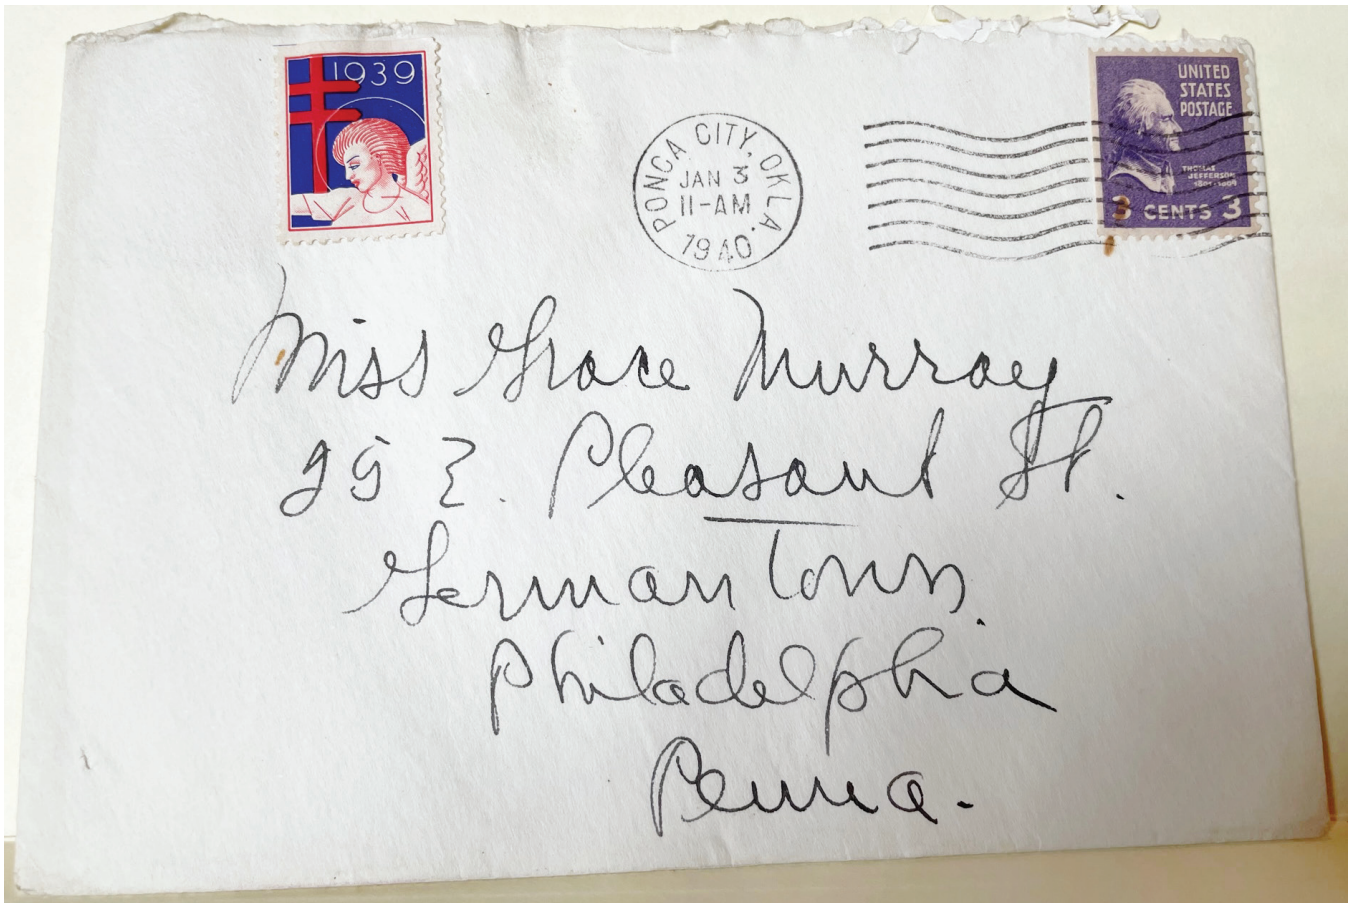 1939
PONCA CITY, OKLA.
JAN 3
11-AM
1940
UNITED
STATES
POSTAGE
THOMAS
JEFFERSON
1801-1809
3 CENTS 3
Miss Grace Murray
25 E. Pleasant St.
Germantown
Philadelphia
Penna.